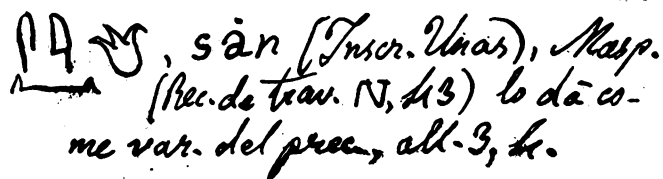 , sàn (Inscr. Unas), Masp.
(Rec. de trav. IV, 43) lo dà co-
me var. del prec., all. 3, 4.